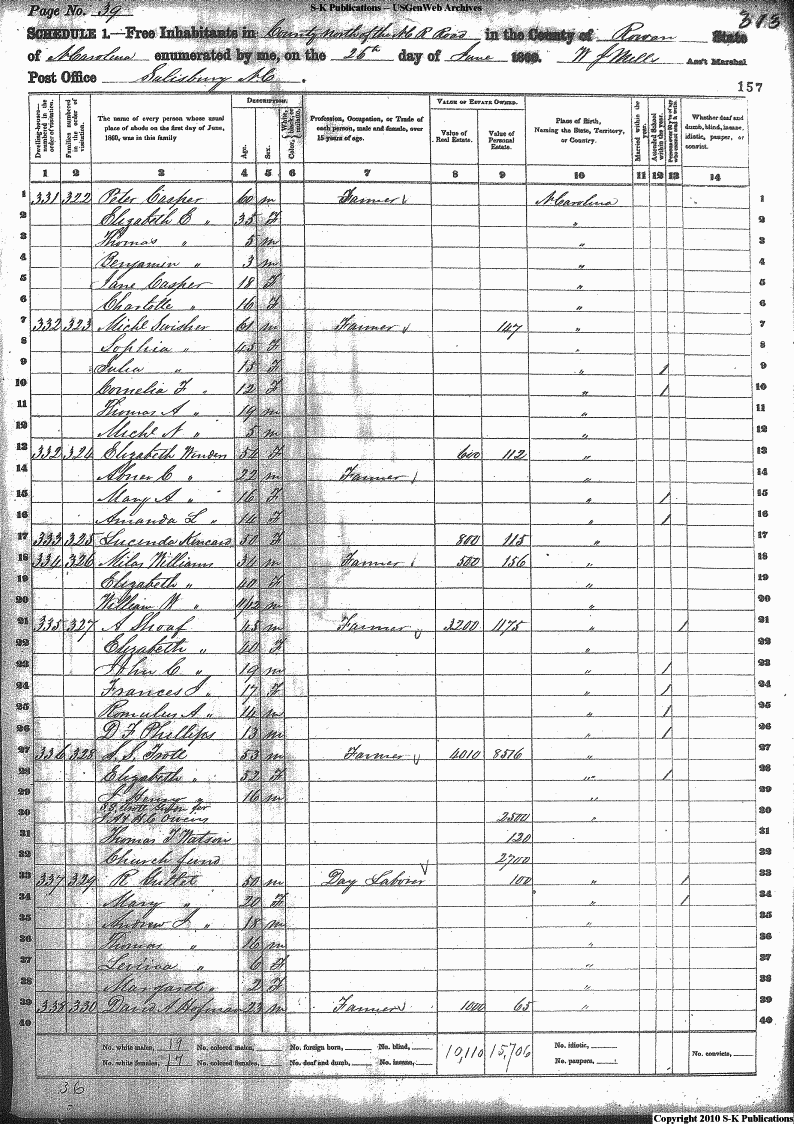 S-K Publications – USGenWeb Archives
Page No. 39
373
SCHEDULE 1.—Free Inhabitants in County North of the N C R Road in the County of Rowan State
of N Carolina enumerated by me, on the 26th day of June 1860. W J Mills Ass't Marshal
Post Office Salisbury N C.
157
Dwelling-houses—numbered in the order of visitation. Families numbered in the order of visitation. The name of every person whose usual place of abode on the first day of June, 1860, was in this family DESCRIPTION. Age. Sex. Color, White, black, or mulatto. Profession, Occupation, or Trade of each person, male and female, over 15 years of age. VALUE OF ESTATE OWNED. Value of Real Estate. Value of Personal Estate. Place of Birth, Naming the State, Territory, or Country. Married within the year. Attended School within the year. Persons over 20 y'rs of age who cannot read & write. Whether deaf and dumb, blind, insane, idiotic, pauper, or convict.
1 2 3 4 5 6 7 8 9 10 11 12 13 14
1 331 322 Peter Casper 60 m Farmer N Carolina 1
2 Elizabeth E " 35 F " 2
3 Thomas " 5 m " 3
4 Benjamin " 3 m " 4
5 Jane Casper 18 F " 5
6 Charlotte " 16 F " 6
7 332 323 Michl Swisher 61 m Farmer 147 " 7
8 Sophia " 45 F " 8
9 Julia " 15 F " / 9
10 Cornelia F " 12 F " / 10
11 Thomas A " 19 m " 11
12 Michl N " 5 m " 12
13 332 324 Elizabeth 54 F 600 112 " 13
14 Abner C " 22 m Farmer " 14
15 Mary A " 16 F " / 15
16 Amanda L " 14 F " / 16
17 333 325 Lucinda Kincaid 50 F 800 115 " 17
18 334 326 Milas Williams 34 m Farmer 500 156 " 18
19 Elizabeth " 40 F " 19
20 William W " m " 20
21 335 327 A Shoaf 45 m Farmer 3200 1175 " / 21
22 Elizabeth " 40 F " 22
23 John C " 19 m " / 23
24 Frances J " 17 F " / 24
25 Romulus A " 14 m " / 25
26 D F Phillips 13 m " / 26
27 336 328 S. S. Trott 53 m Farmer 4010 8516 " 27
28 Elizabeth " 52 F " / 28
29 Henry " 16 m " 29
30 S.S. Trott for
H C Owens 2500 " 30
31 Thomas F Watson 120 31
32 Church fund 2700 32
33 337 329 R 50 m Day Laborer 100 " / 33
34 Mary " 20 F " / 34
35 Andrew J " 18 m " 35
36 Thomas " 16 m " 36
37 Levina " 6 F " 37
38 Margaret " 2 F " 38
39 338 330 David A Hofman 23 m Farmer 1000 65 " 39
40 40
No. white males, 19 No. colored males, No. foreign born, No. blind, 10,110 15,706 No. idiotic,
No. white females, 17 No. colored females, No. deaf and dumb, No. insane, No. paupers, No. convicts,
36
Copyright 2010 S-K Publications